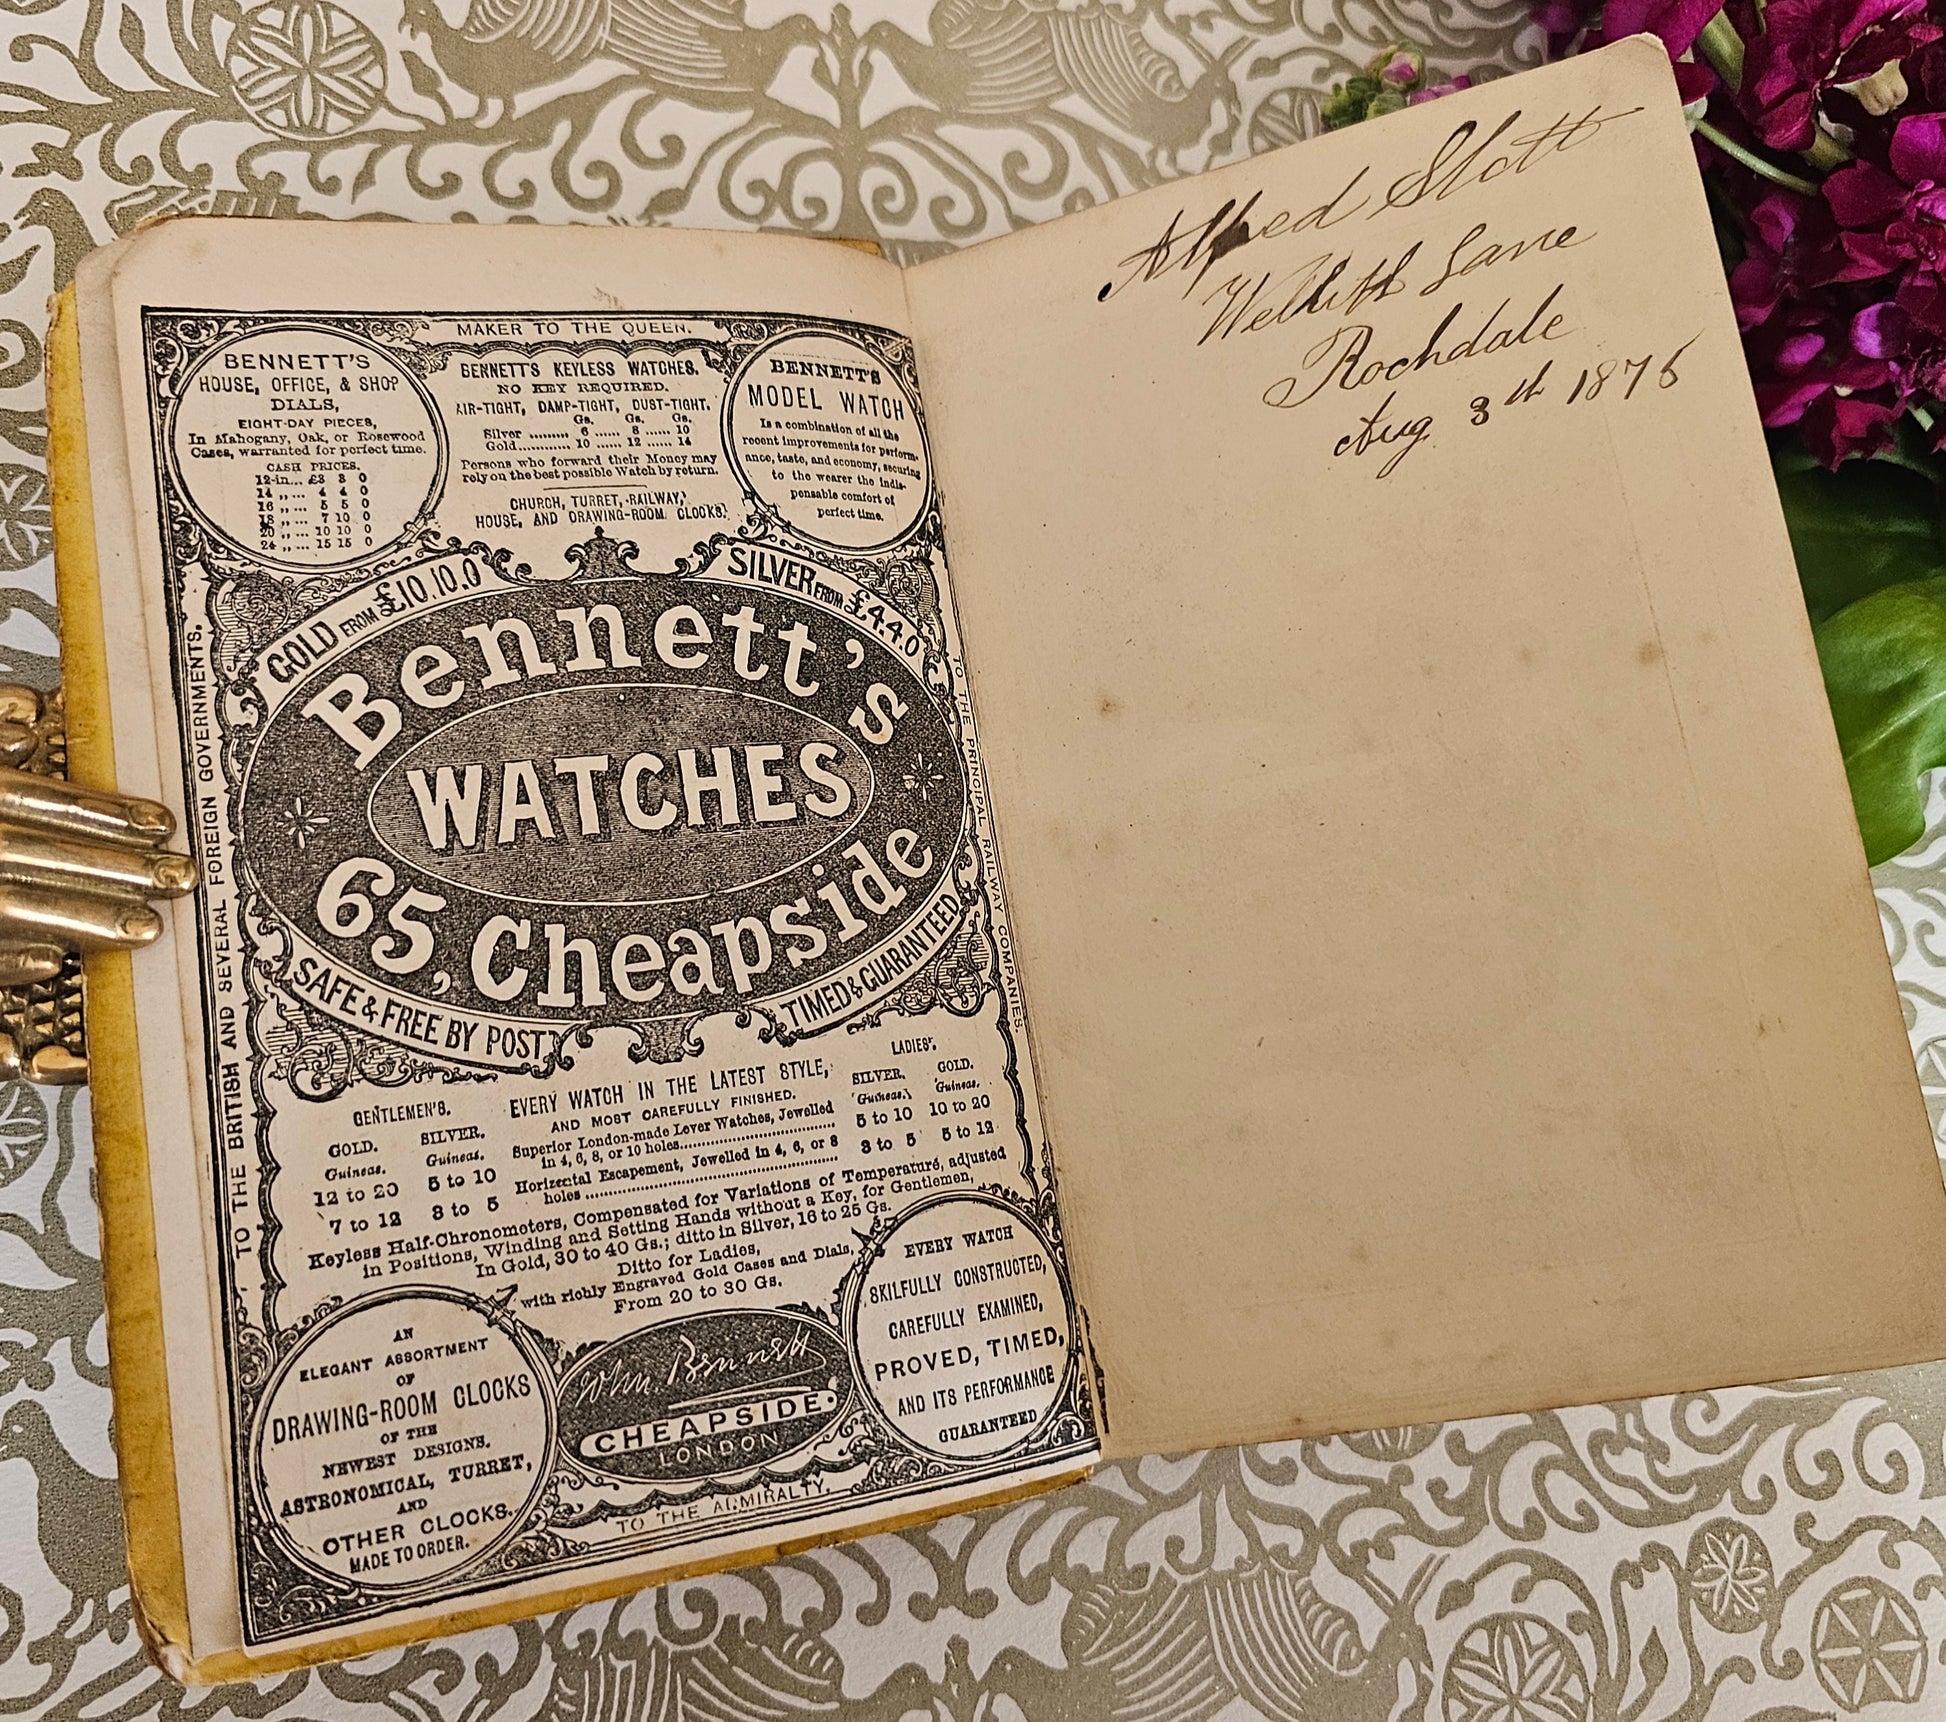 MAKER TO THE QUEEN.
BENNETT'S
HOUSE, OFFICE, & SHOP
DIALS,
EIGHT-DAY PIECES,
In Mahogany, Oak, or Rosewood
Cases, warranted for perfect time.
CASH PRICES.
12-in... £3 3 0
14 ,, ... 4 4 0
16 ,, ... 5 5 0
18 ,, ... 7 10 0
20 ,, ... 10 10 0
24 ,, ... 15 15 0
BENNETT'S KEYLESS WATCHES.
NO KEY REQUIRED.
AIR-TIGHT, DAMP-TIGHT, DUST-TIGHT.
Gs. Gs. Gs.
Silver ......... 6 ...... 8 ...... 10
Gold............ 10 ...... 12 ...... 14
Persons who forward their Money may
rely on the best possible Watch by return.
CHURCH, TURRET, RAILWAY,
HOUSE, AND DRAWING-ROOM CLOCKS.
BENNETT'S
MODEL WATCH
Is a combination of all the
recent improvements for perform-
ance, taste, and economy, securing
to the wearer the indis-
pensable comfort of
perfect time.
GOLD FROM £10.10.0
SILVER FROM £4.4.0
Bennett's
WATCHES
65, Cheapside
SAFE & FREE BY POST
TIMED & GUARANTEED
TO THE BRITISH AND SEVERAL FOREIGN GOVERNMENTS.
TO THE PRINCIPAL RAILWAY COMPANIES.
GENTLEMEN'S.
GOLD. SILVER.
Guineas. Guineas.
12 to 20 5 to 10
7 to 12 3 to 5
EVERY WATCH IN THE LATEST STYLE,
AND MOST CAREFULLY FINISHED.
Superior London-made Lever Watches, Jewelled
in 4, 6, 8, or 10 holes
Horizontal Escapement, Jewelled in 4, 6, or 8
holes
LADIES'.
SILVER. GOLD.
Guineas. Guineas.
5 to 10 10 to 20
3 to 5 5 to 12
Keyless Half-Chronometers, Compensated for Variations of Temperature, adjusted
in Positions, Winding and Setting Hands without a Key, for Gentlemen,
In Gold, 30 to 40 Gs.; ditto in Silver, 16 to 25 Gs.
Ditto for Ladies,
with richly Engraved Gold Cases and Dials,
From 20 to 30 Gs.
AN
ELEGANT ASSORTMENT
OF
DRAWING-ROOM CLOCKS
OF THE
NEWEST DESIGNS.
ASTRONOMICAL, TURRET,
AND
OTHER CLOCKS.
MADE TO ORDER.
John Bennett
CHEAPSIDE.
LONDON
EVERY WATCH
SKILFULLY CONSTRUCTED,
CAREFULLY EXAMINED,
PROVED, TIMED,
AND ITS PERFORMANCE
GUARANTEED
TO THE ADMIRALTY.
Alfred Stott
Lane
Rochdale
Aug 3th 1876